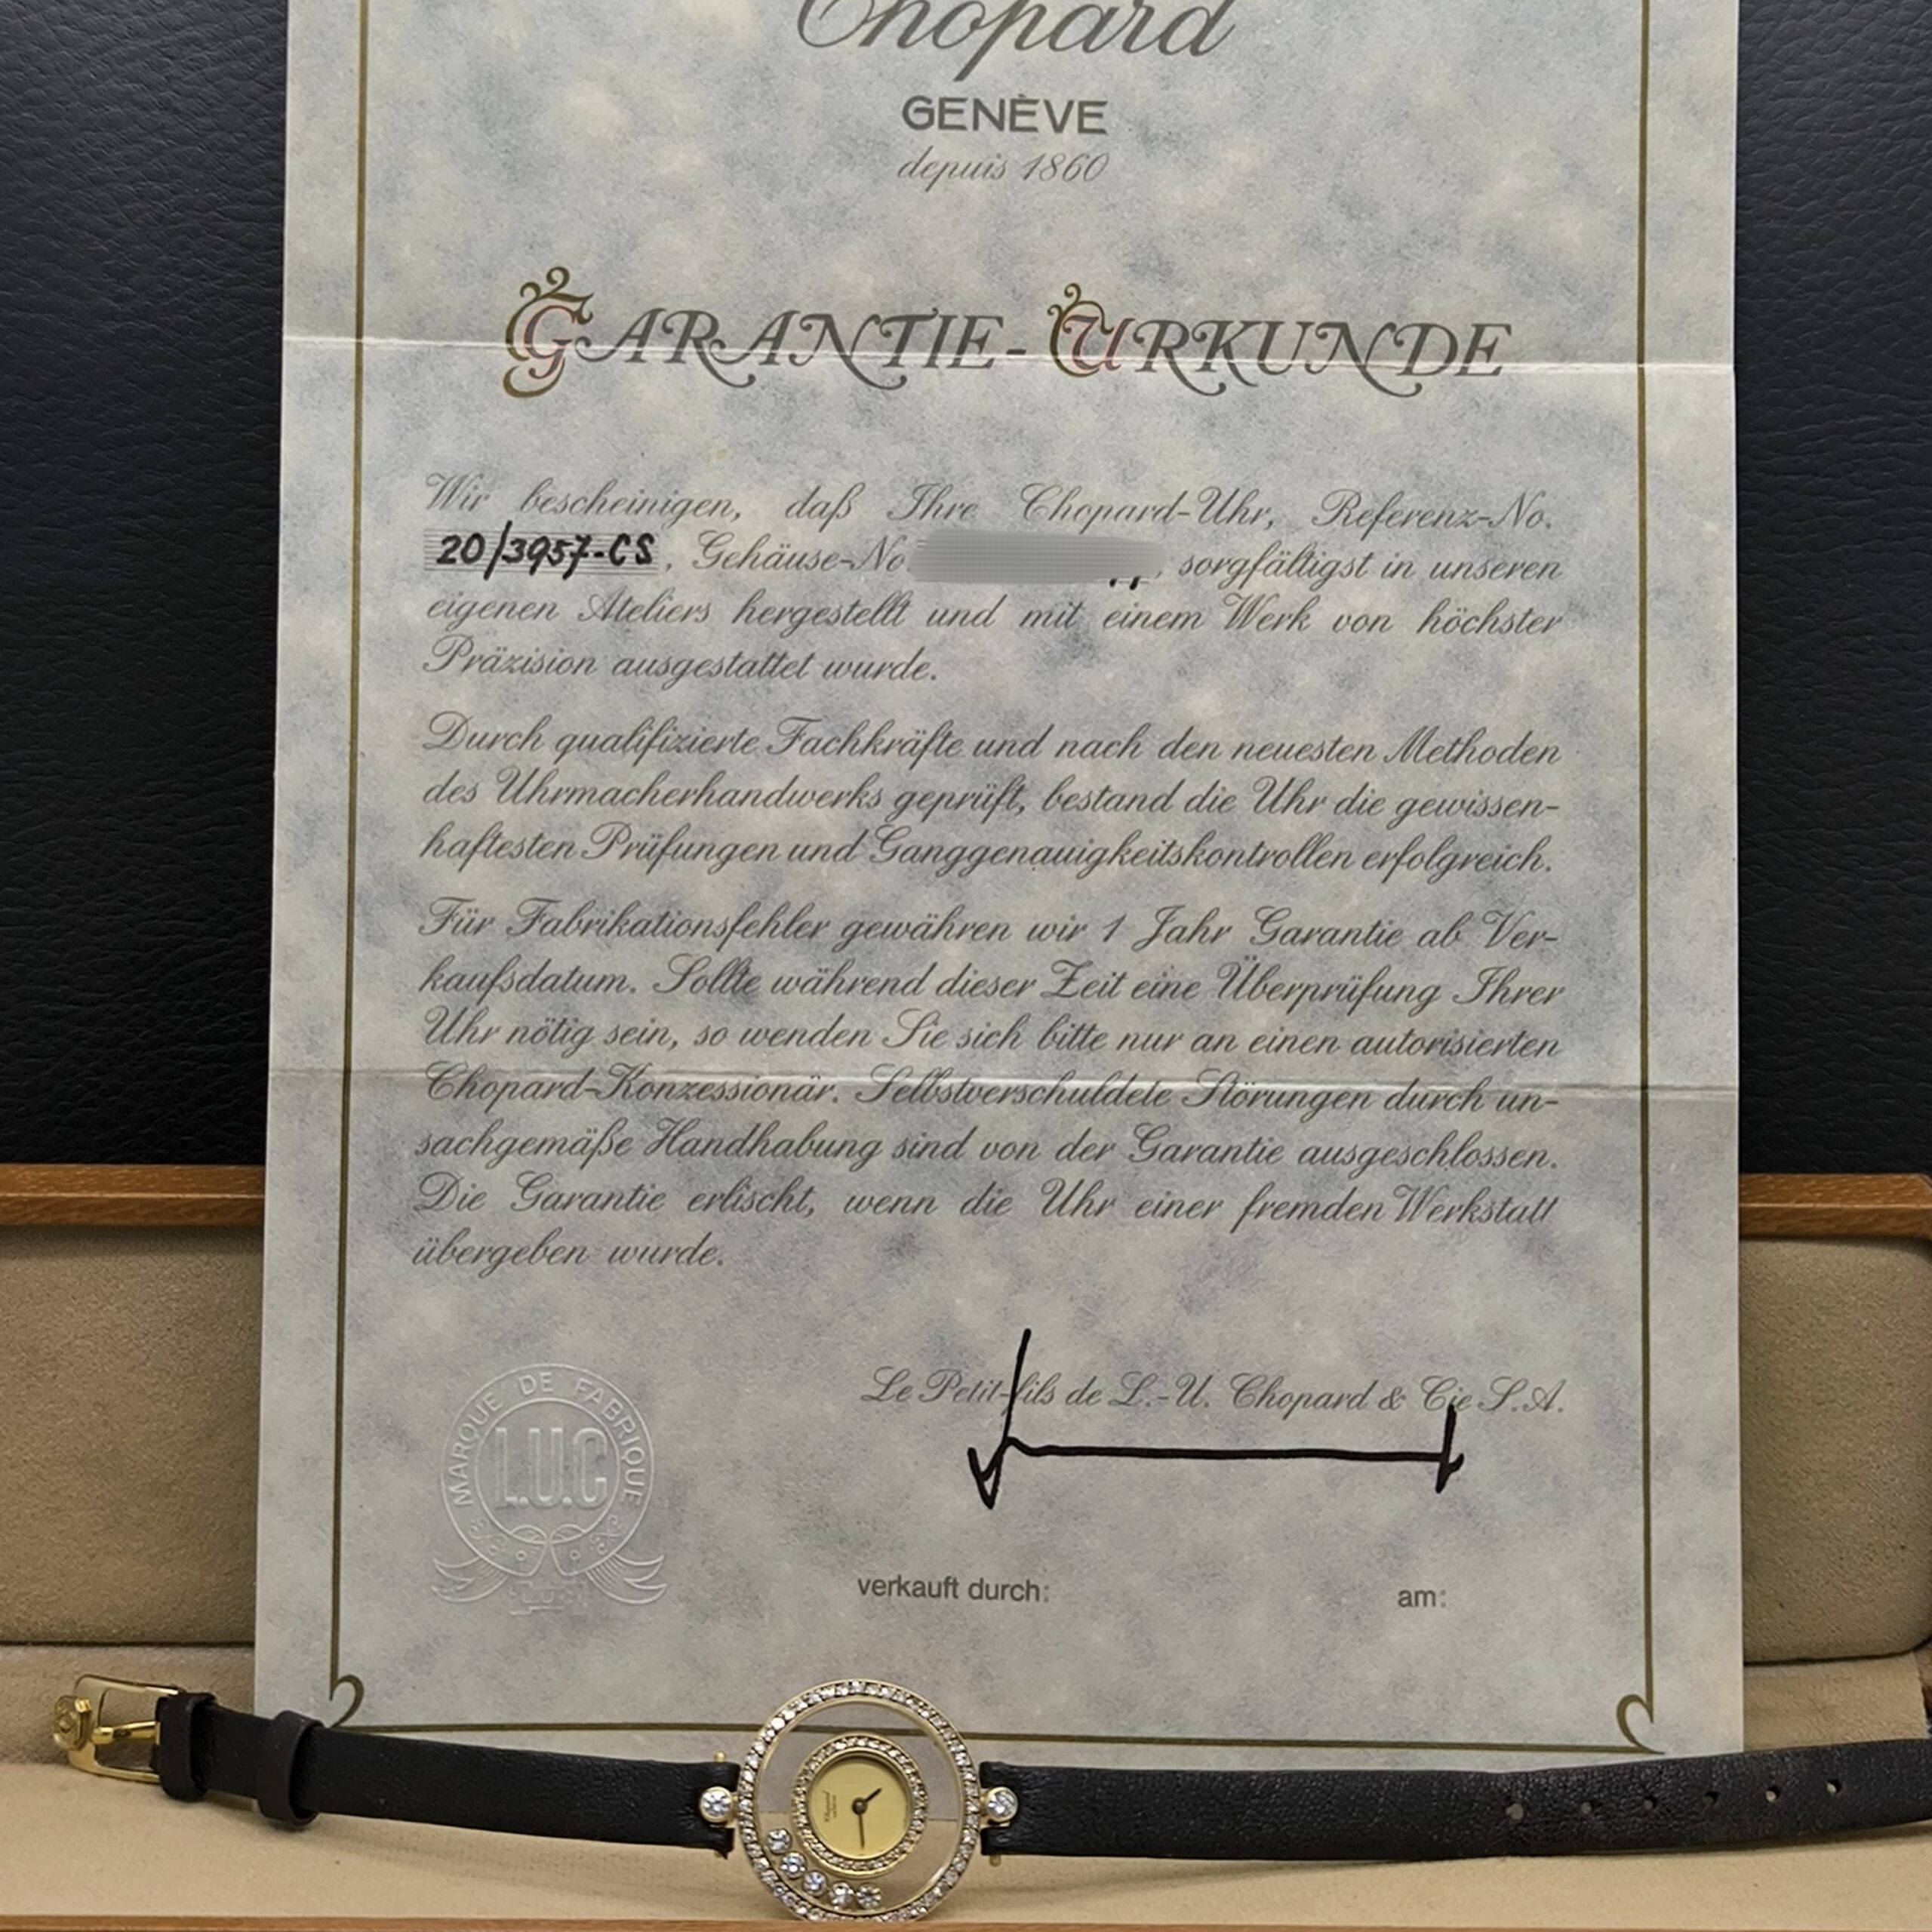 Chopard
GENÈVE
depuis 1860
GARANTIE-URKUNDE
Wir bescheinigen, daß Ihre Chopard-Uhr, Referenz-No.
20/3957-CS, Gehäuse-No , sorgfältigst in unseren
eigenen Ateliers hergestellt und mit einem Werk von höchster
Präzision ausgestattet wurde.
Durch qualifizierte Fachkräfte und nach den neuesten Methoden
des Uhrmacherhandwerks geprüft, bestand die Uhr die gewissen-
haftesten Prüfungen und Ganggenauigkeitskontrollen erfolgreich.
Für Fabrikationsfehler gewähren wir 1 Jahr Garantie ab Ver-
kaufsdatum. Sollte während dieser Zeit eine Überprüfung Ihrer
Uhr nötig sein, so wenden Sie sich bitte nur an einen autorisierten
Chopard-Konzessionär. Selbstverschuldete Störungen durch un-
sachgemäße Handhabung sind von der Garantie ausgeschlossen.
Die Garantie erlischt, wenn die Uhr einer fremden Werkstatt
übergeben wurde.
Le Petit-fils de L.-U. Chopard & Cie S.A.
MARQUE DE FABRIQUE
L.U.C
verkauft durch:
am:
Chopard